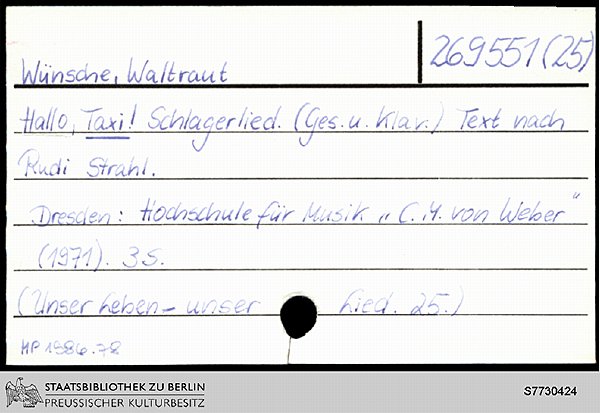 269551(25)
Wünsche, Waltraut
Hallo, Taxi! Schlagerlied. (Ges. u. Klav.) Text nach
Rudi Strahl.
Dresden: Hochschule für Musik „C. M. von Weber"
(1971). 3 S.
(Unser Leben – unser Lied. 25.)
MP 1986.78
STAATSBIBLIOTHEK ZU BERLIN
PREUSSISCHER KULTURBESITZ
S7730424